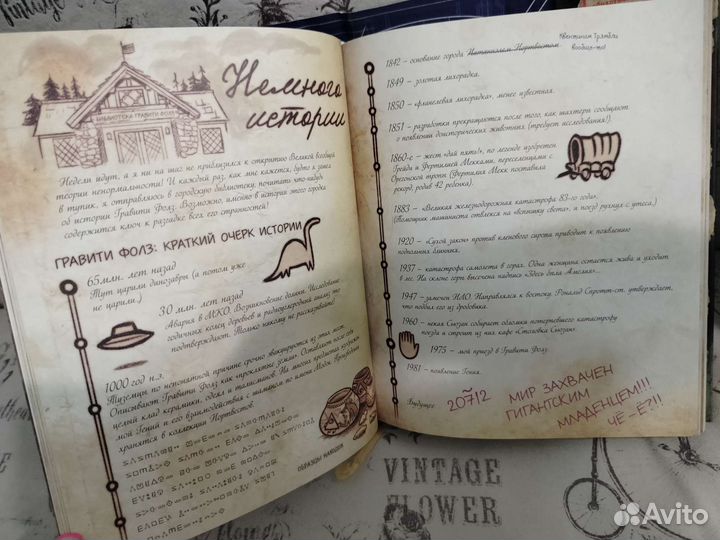 Vintage
БИБЛИОТЕКА ГРАВИТИ ФОЛЗ
Немного
истории
Недели идут, а я ни на шаг не приблизился к открытию Великой вообще
теории ненормальности! И каждый раз, как мне кажется, будто я зашел
в тупик, я отправляюсь в городскую библиотеку, почитать что-нибудь
об истории Гравити Фолз. Возможно, именно в истории этого города
содержится ключ к разгадке всех его странностей!
ГРАВИТИ ФОЛЗ: КРАТКИЙ ОЧЕРК ИСТОРИИ
65 млн. лет назад
Тут царили динозавры (а потом уже
не царили.)
30 млн. лет назад
Авария в МКО. Возникновение долины. Исследование
годичных колец деревьев и радиоуглеродный анализ это
подтверждают. Только никому не рассказывайте!
1000 год н.э.
Туземцы по непонятной причине срочно эвакуируются из этих мест.
Описывают Гравити Фолз как проклятые земли. Оставляют после себя
целый клад керамики, одеял и талисманов. На многих предметах
мой Гений и его взаимодействия с шаманом по имени Модок
хранятся в коллекции Нортвестов.
ОБРАЗЦЫ НАХОДОК
Квентином Трембли
вообще-то!
1842 – основание города Натаниэлем Нортвестом.
1849 – золотая лихорадка.
1850 – «фланелевая лихорадка», менее известная.
1851 – разработки прекращаются после того, как шахтеры сообщают
о появлении доисторических животных. (требует исследования!)
1860-е – жест «дай пять!», по легенде изобретен
Грейди и Фертилией Мекками, переселенцами с
Орегонской тропы (Фертилия Мекк поставила
рекорд, родив 42 ребенка).
1883 – «Великая железнодорожная катастрофа 83-го года».
(Помощник машиниста отвлекся на «вспышку света», и поезд рухнул с утеса.)
1920 – «Сухой закон» против кленового сиропа приводит к появлению
подпольных блинных.
1937 – катастрофа самолета в горах. Одна женщина остается жива и уходит
в лес. На склоне горы высечена надпись «Здесь была Амелия».
1947 – замечен НЛО. Направлялся к востоку. Рональд Спротт-ст. утверждает,
что подбил его из дробовика.
1960 – некая Сьюзан собирает обломки потерпевшего катастрофу
поезда и строит из них кафе «Столовка Сьюзан».
1975 – мой приезд в Гравити Фолз.
1981 – появление Гения.
Будущее
20712
МИР ЗАХВАЧЕН
ГИГАНТСКИМ
МЛАДЕНЦЕМ!!!
ЧЁ–Ё?!!
VINTAGE
FLOWER
Avito